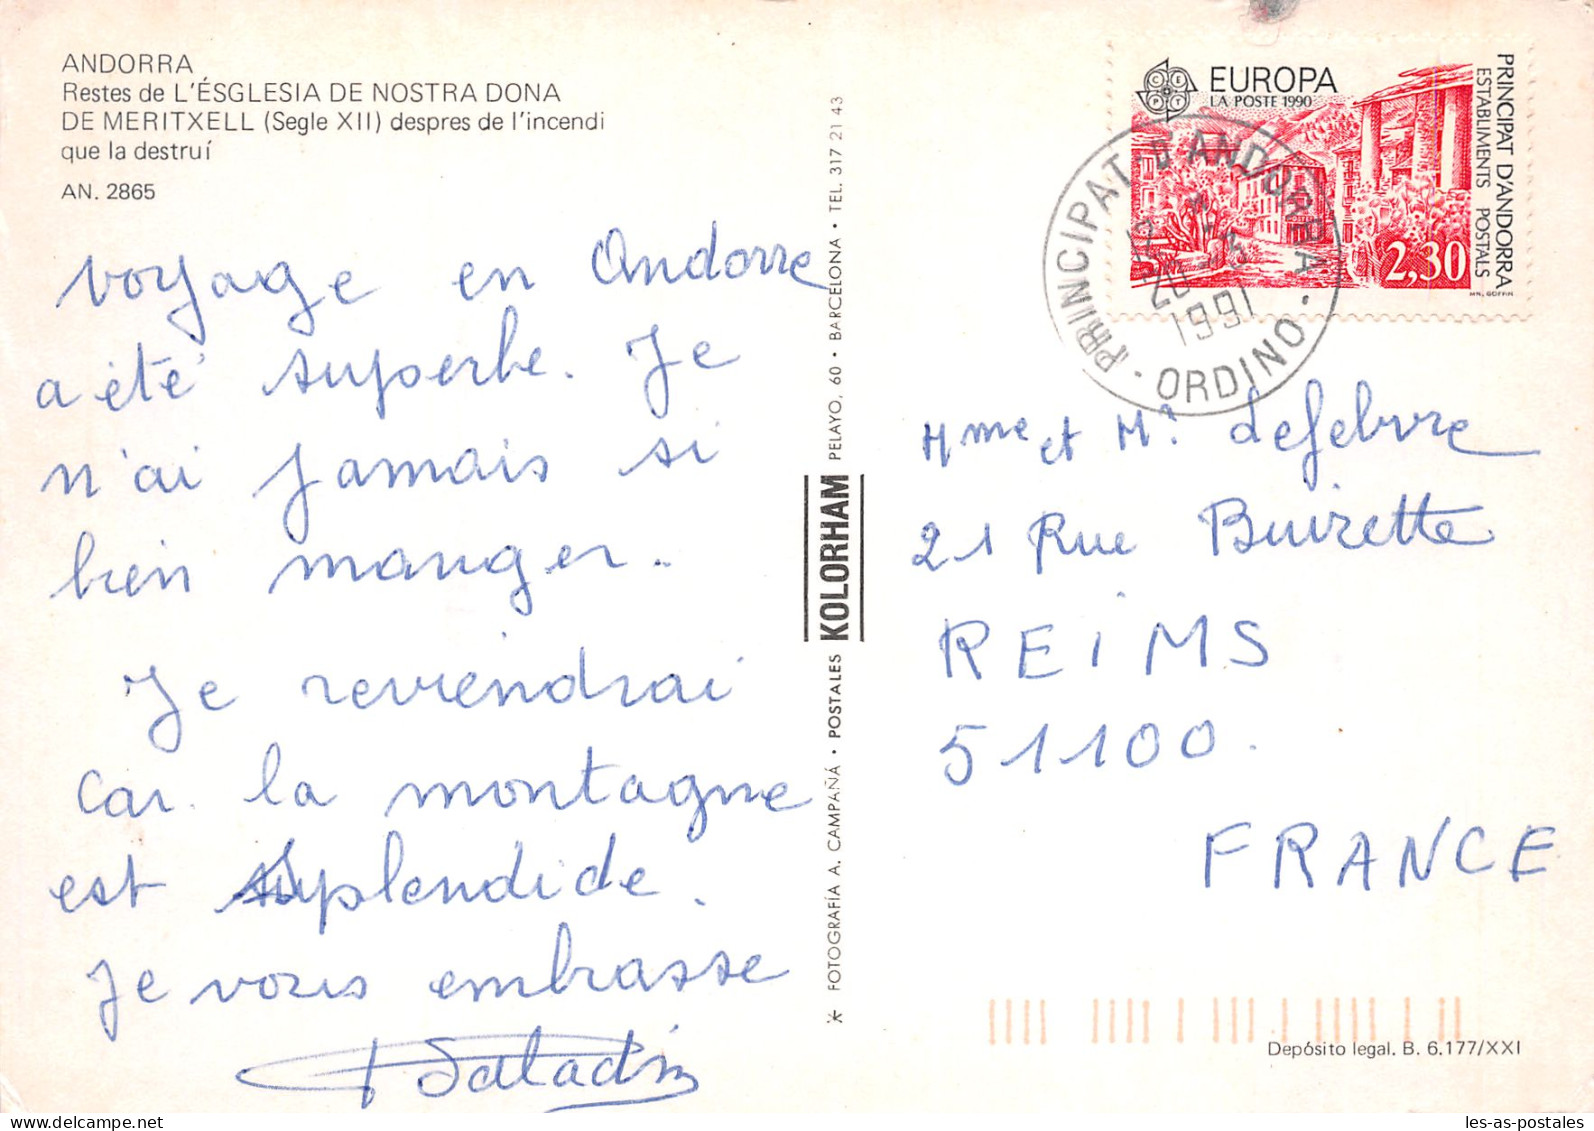 ANDORRA
Restes de L'ÉSGLESIA DE NOSTRA DONA
DE MERITXELL (Segle XII) despres de l'incendi
que la destruí
AN. 2865
voyage en Andorre
a été superbe. Je
n'ai jamais si
bien manger.
Je reviendrai
car la montagne
est splendide.
Je vous embrasse
Saladin
FOTOGRAFÍA A. CAMPAÑÁ · POSTALES KOLORHAM PELAYO, 60 · BARCELONA · TEL. 317 21 43
EUROPA
LA POSTE 1990
PRINCIPAT D'ANDORRA
ESTABLIMENTS POSTALS
2,30
PRINCIPAT D'ANDORRA
1991
· ORDINO ·
Mme et Mr Lefebvre
21 Rue Buirette
REIMS
51100.
FRANCE
Depósito legal. B. 6.177/XXI
les-as-postales